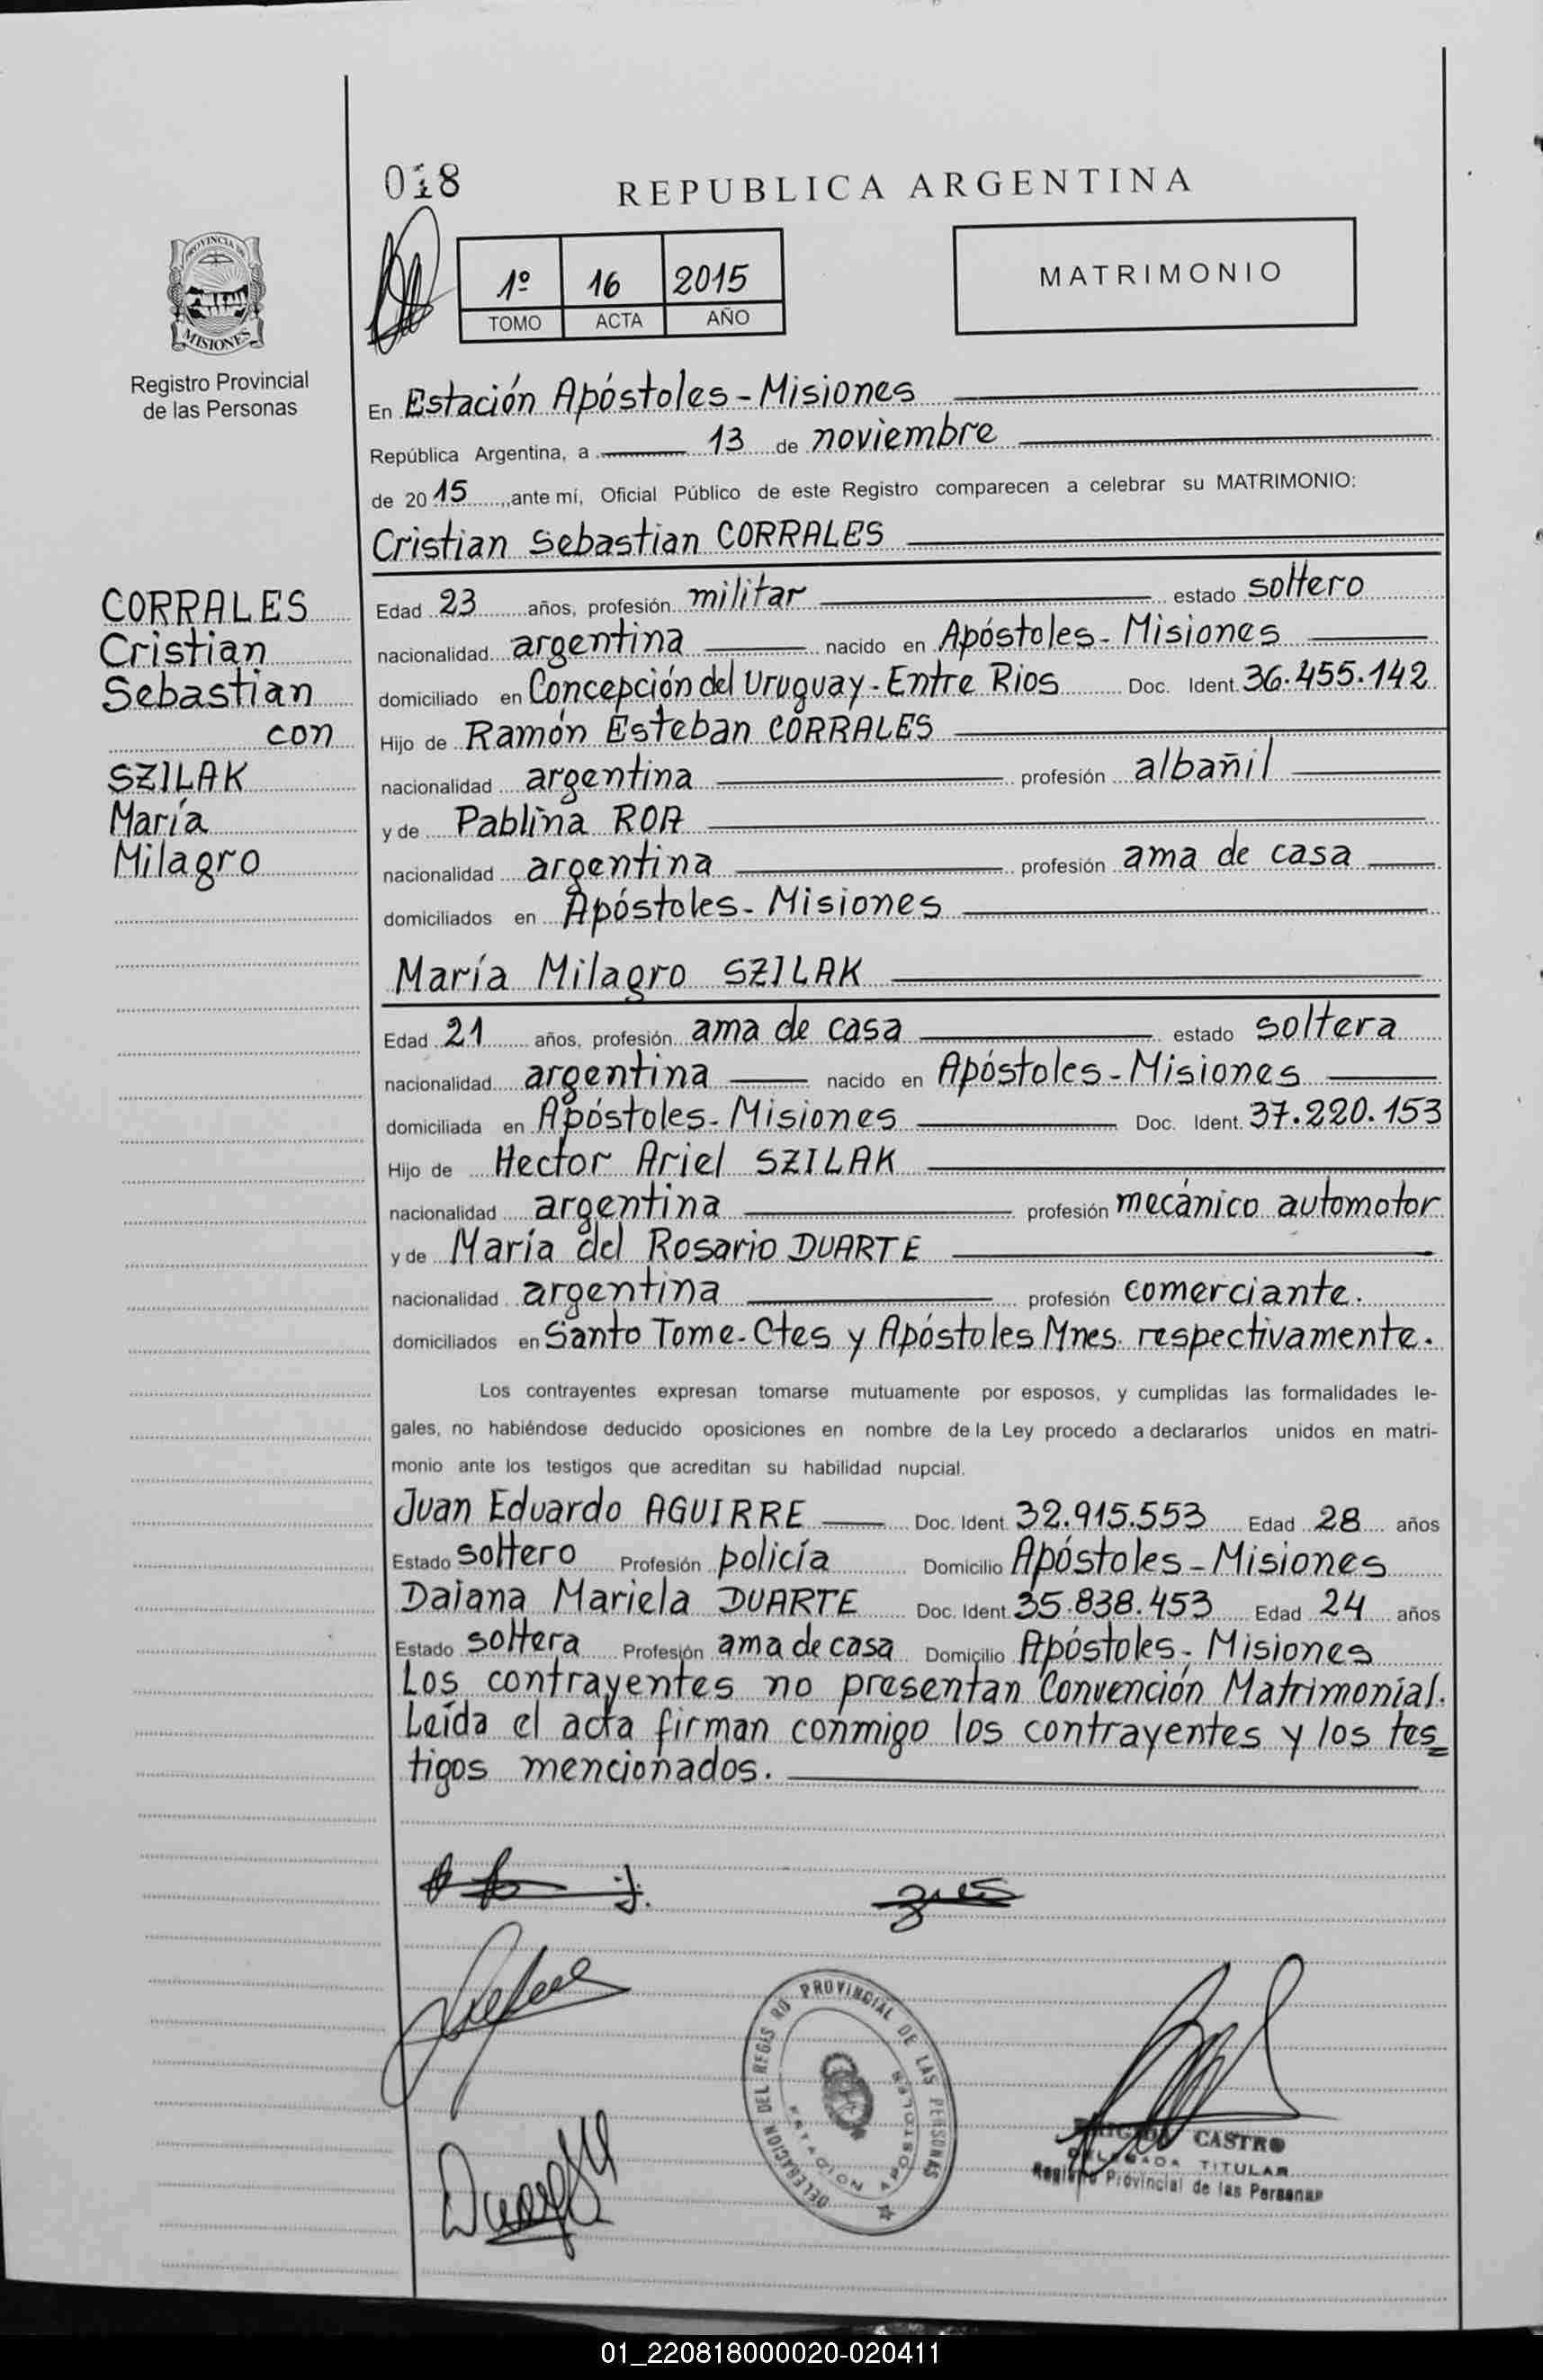 018
REPUBLICA ARGENTINA
PROVINCIA DE
MISIONES
Registro Provincial
de las Personas
1º 16 2015
TOMO ACTA AÑO
MATRIMONIO
En Estación Apóstoles - Misiones
República Argentina, a 13 de noviembre
de 2015, ante mí, Oficial Público de este Registro comparecen a celebrar su MATRIMONIO:
Cristian Sebastian CORRALES
CORRALES
Cristian
Sebastian
con
SZILAK
María
Milagro
Edad 23 años, profesión militar estado soltero
nacionalidad argentina nacido en Apóstoles - Misiones
domiciliado en Concepción del Uruguay - Entre Rios Doc. Ident. 36.455.142
Hijo de Ramón Esteban CORRALES
nacionalidad argentina profesión albañil
y de Pablina ROA
nacionalidad argentina profesión ama de casa
domiciliados en Apóstoles - Misiones
María Milagro SZILAK
Edad 21 años, profesión ama de casa estado soltera
nacionalidad argentina nacido en Apóstoles - Misiones
domiciliada en Apóstoles - Misiones Doc. Ident. 37.220.153
Hijo de Hector Ariel SZILAK
nacionalidad argentina profesión mecánico automotor
y de María del Rosario DUARTE
nacionalidad argentina profesión comerciante.
domiciliados en Santo Tome - Ctes y Apóstoles Mnes. respectivamente.
Los contrayentes expresan tomarse mutuamente por esposos, y cumplidas las formalidades le-
gales, no habiéndose deducido oposiciones en nombre de la Ley procedo a declararlos unidos en matri-
monio ante los testigos que acreditan su habilidad nupcial.
Juan Eduardo AGUIRRE Doc. Ident. 32.915.553 Edad 28 años
Estado soltero Profesión policía Domicilio Apóstoles - Misiones
Daiana Mariela DUARTE Doc. Ident. 35.838.453 Edad 24 años
Estado soltera Profesión ama de casa Domicilio Apóstoles - Misiones
Los contrayentes no presentan Convención Matrimonial.
Leída el acta firman conmigo los contrayentes y los tes=
tigos mencionados.
DELEGACION DEL REGIS RO PROVINCIAL DE LAS PERSONAS
ESTACION APOSTOLES
CASTRO
DELEGADA TITULAR
Registro Provincial de las Personas
01_220818000020-020411